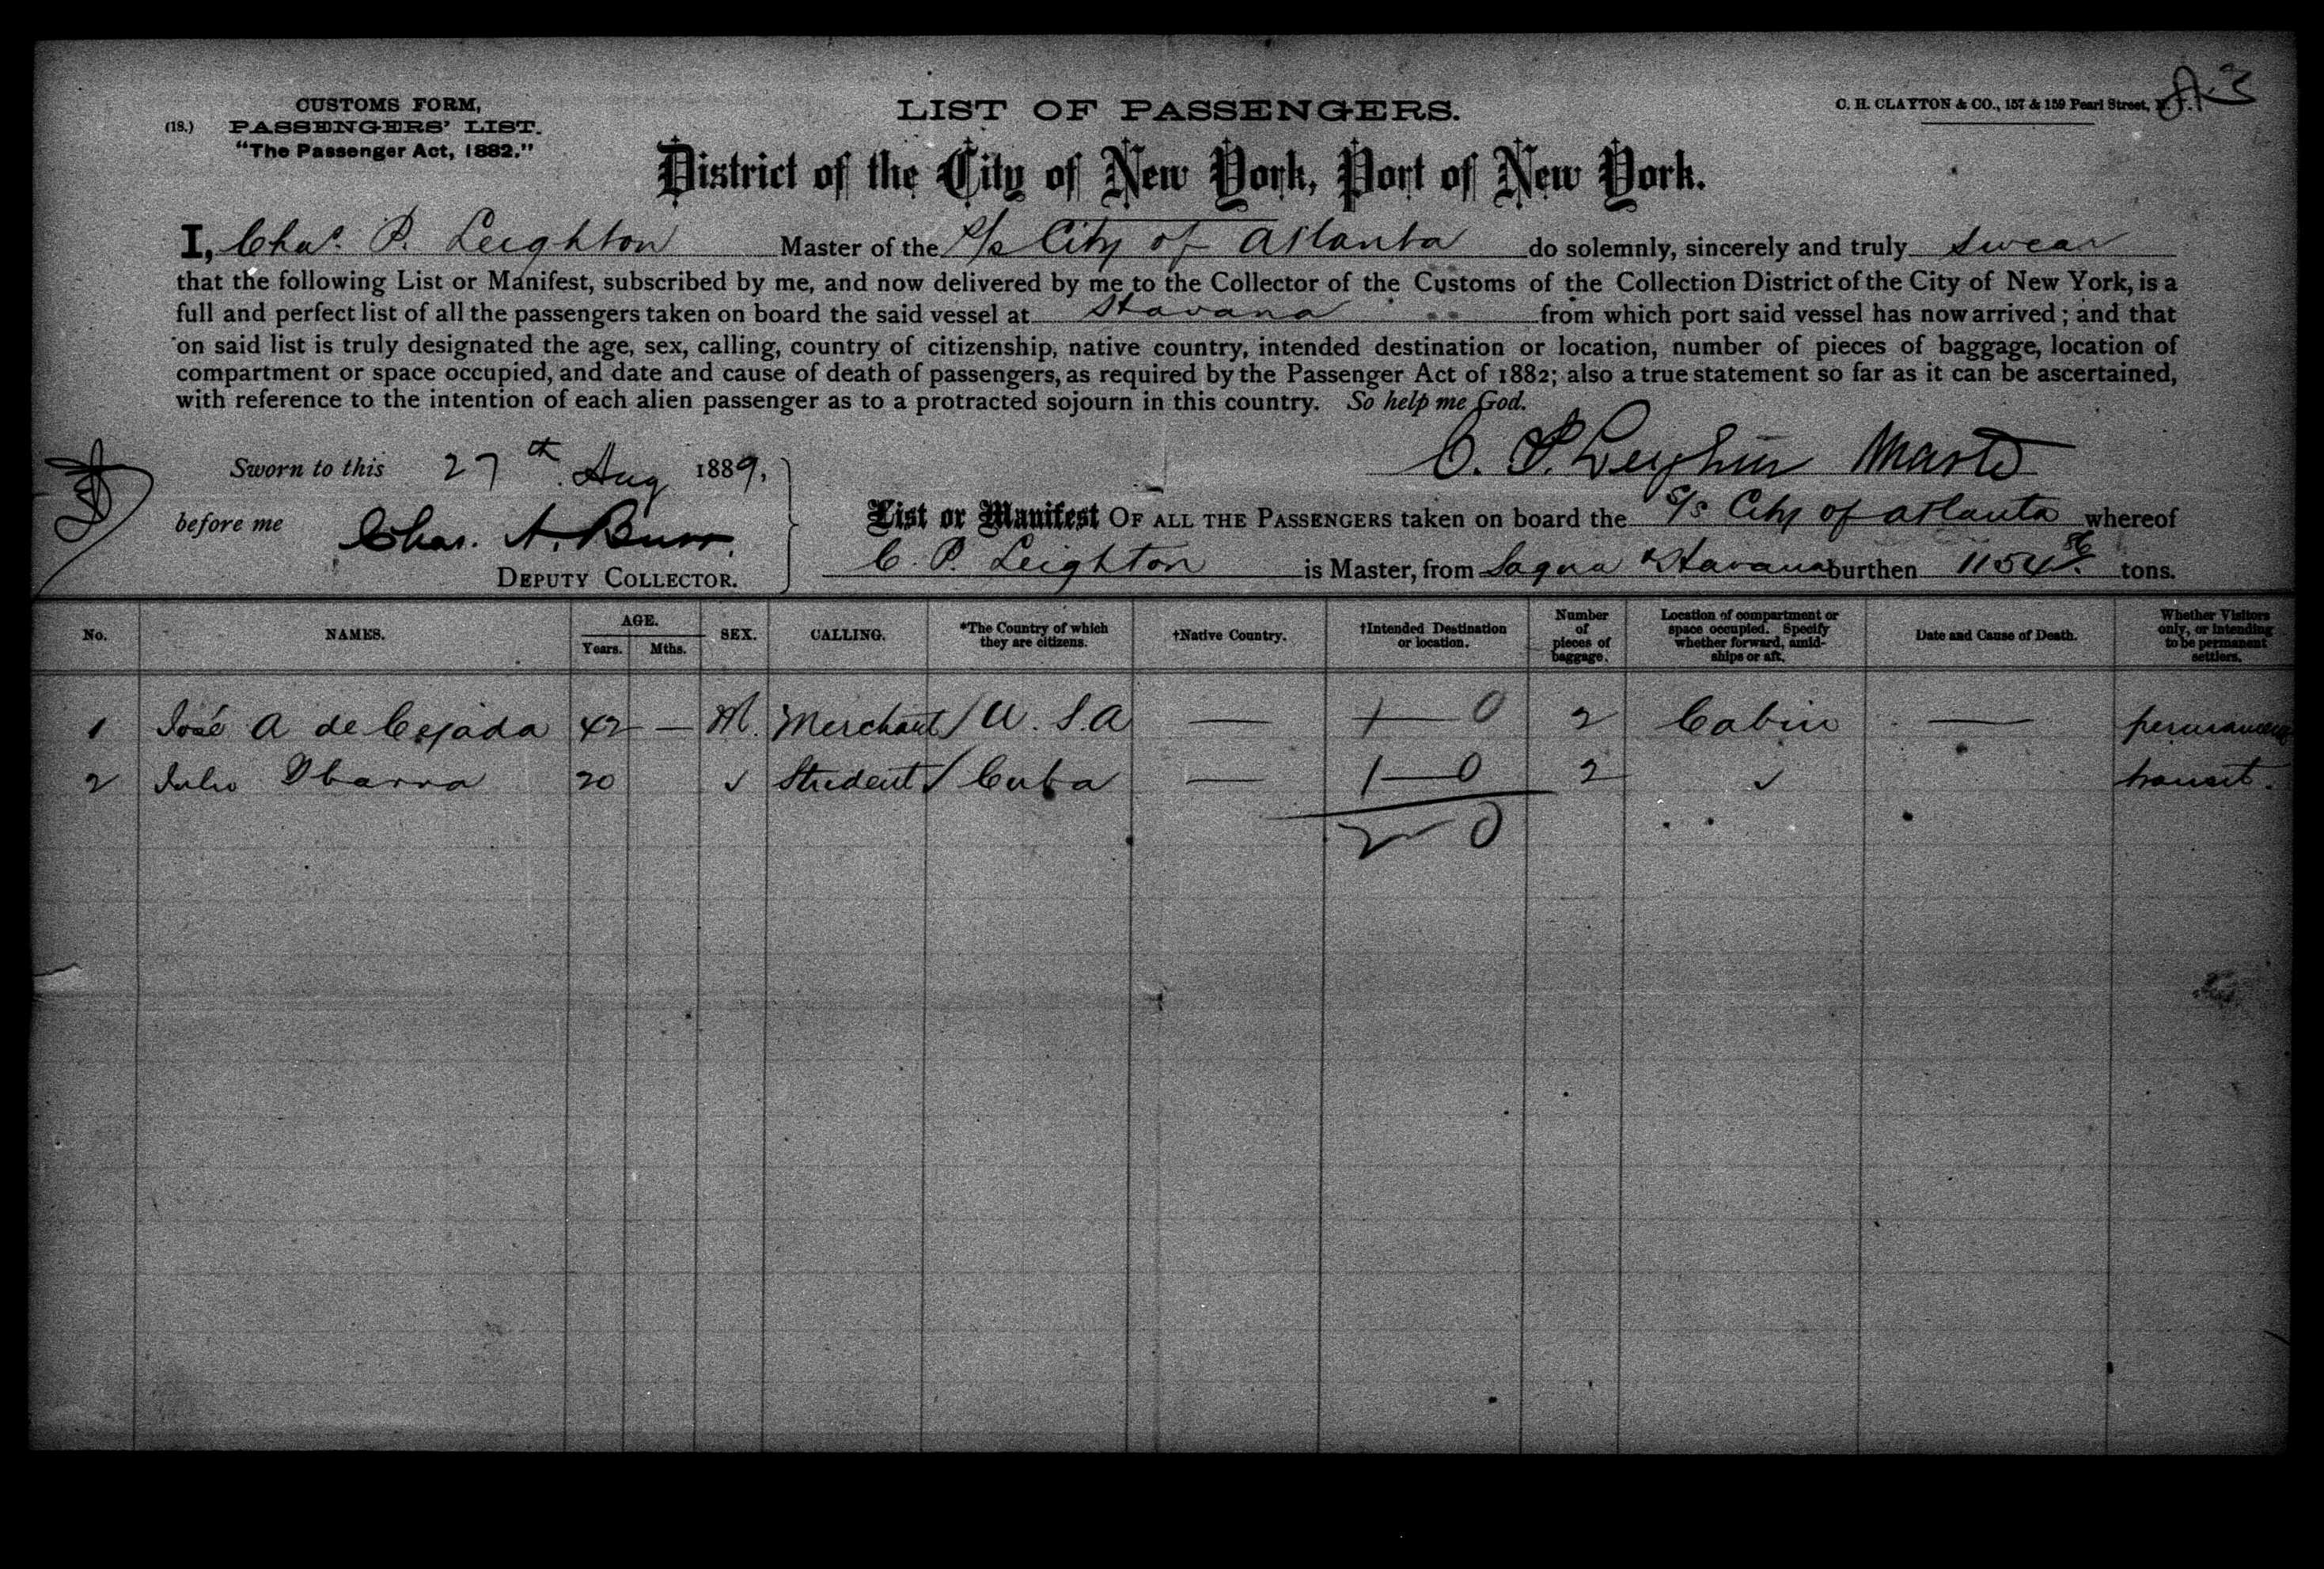 CUSTOMS FORM,
(18.) PASSENGERS' LIST.
"The Passenger Act, 1882."
LIST OF PASSENGERS.
C. H. CLAYTON & CO., 157 & 159 Pearl Street, N. Y.
District of the City of New York, Port of New York.
I, Chas. P. Leighton Master of the S/s City of Atlanta do solemnly, sincerely and truly swear
that the following List or Manifest, subscribed by me, and now delivered by me to the Collector of the Customs of the Collection District of the City of New York, is a
full and perfect list of all the passengers taken on board the said vessel at Havana from which port said vessel has now arrived; and that
on said list is truly designated the age, sex, calling, country of citizenship, native country, intended destination or location, number of pieces of baggage, location of
compartment or space occupied, and date and cause of death of passengers, as required by the Passenger Act of 1882; also a true statement so far as it can be ascertained,
with reference to the intention of each alien passenger as to a protracted sojourn in this country. So help me God.
C. P. Leighton Master
Sworn to this 27th Aug 1889,
before me Chas. A. Burr.
DEPUTY COLLECTOR.
List or Manifest OF ALL THE PASSENGERS taken on board the S/s City of Atlanta whereof
C. P. Leighton is Master, from Sagua & Havana burthen 1154 86 tons.
No. NAMES. AGE. Years. Mths. SEX. CALLING. *The Country of which they are citizens. †Native Country. †Intended Destination or location. Number of pieces of baggage. Location of compartment or space occupied. Specify whether forward, amid-ships or aft. Date and Cause of Death. Whether Visitors only, or intending to be permanent settlers.
1 José A de Cejada 42 — M. Merchant / U. S. A — 1—0 2 Cabin —
2 Julio Ibarra 20 ✓ Student / Cuba — 1—0 2 ✓ transit.
2—0